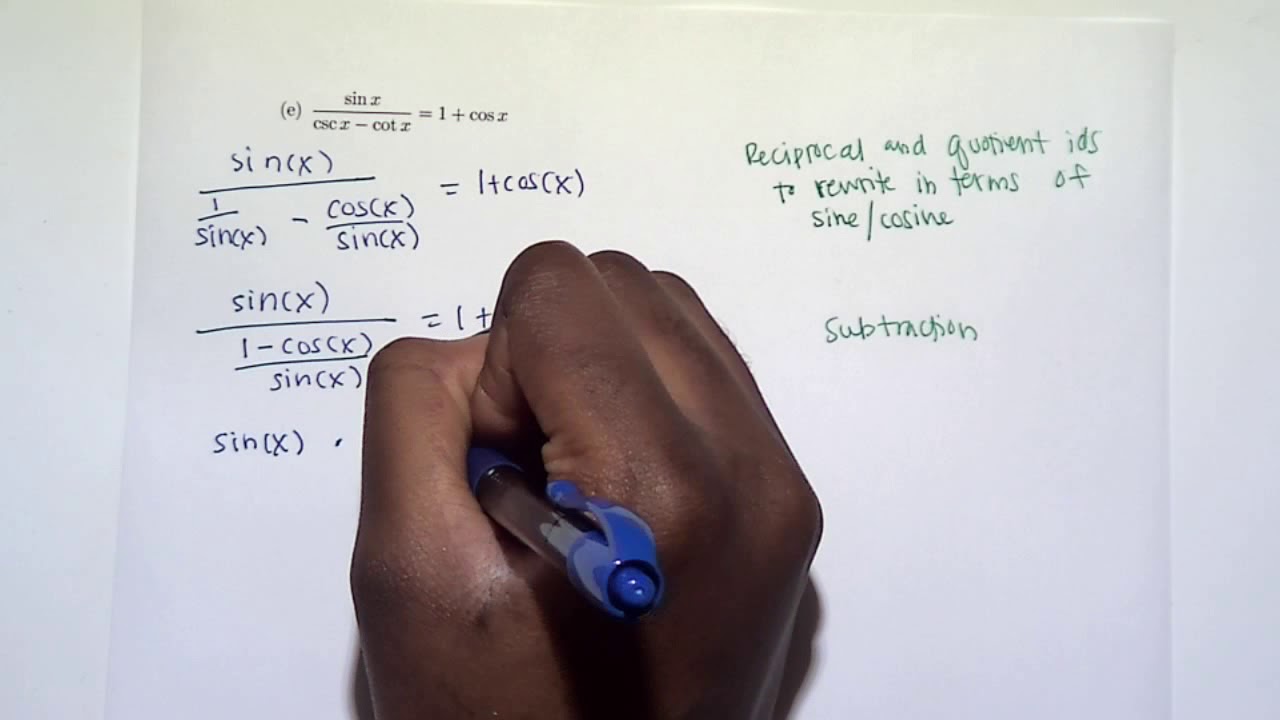 (e) sin x / csc x − cot x = 1 + cos x
sin(x) / 1/sin(x) − cos(x)/sin(x) = 1+cos(x)
Reciprocal and quotient ids
to rewrite in terms of
sine/cosine
sin(x) / 1−cos(x)/sin(x) = 1+
Subtraction
sin(x) ·